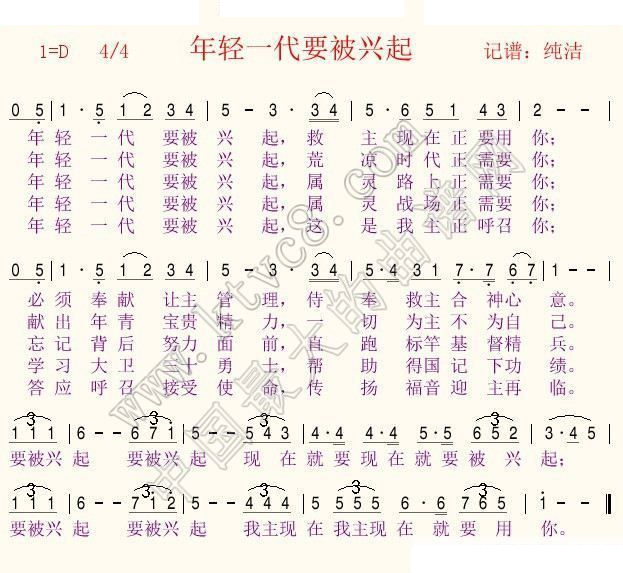 1=D 4/4 年轻一代要被兴起 记谱：纯洁
0 5 | 1· 5 1 2 3 4 | 5 - 3· 3 4 | 5· 6 5 1 4 3 | 2 - - |
年轻一代 要被兴起，救主现在正要用你；
年轻一代 要被兴起，荒凉时代正需要你；
年轻一代 要被兴起，属灵路上正需要你；
年轻一代 要被兴起，属灵战场正需要你；
年轻一代 要被兴起，这是我主正呼召你；
0 5 | 1· 5 1 2 3 4 | 5 - 3· 3 4 | 5· 4 4· 3 3 1 | 7· 7 6 7 | 1 - - |
必须奉献 让主管理，侍奉救主合神心意。
献出年青 宝贵精力，一切为主不为自己。
忘记背后 努力面前，直跑标竿基督精兵。
学习大卫 三十勇士，帮助得国记下功绩。
答应呼召 接受使命，传扬福音迎主再临。
1 1 1 | 6 - - 6 7 1 | 5 - - 5 4 3 | 4· 4 4· 4 5· 5 6 5 2 | 3· 3 4 5 |
要被兴起 要被兴起 现在就要现在就要被兴起；
1 1 1 | 6 - - 7 1 2 | 5 - - 4 4 4 | 5 5 5 5 6· 6 7 | 1 - - ‖
要被兴起 要被兴起 我主现在我主现在就要用你。
www.ktvc8.com
中国最大的曲谱网